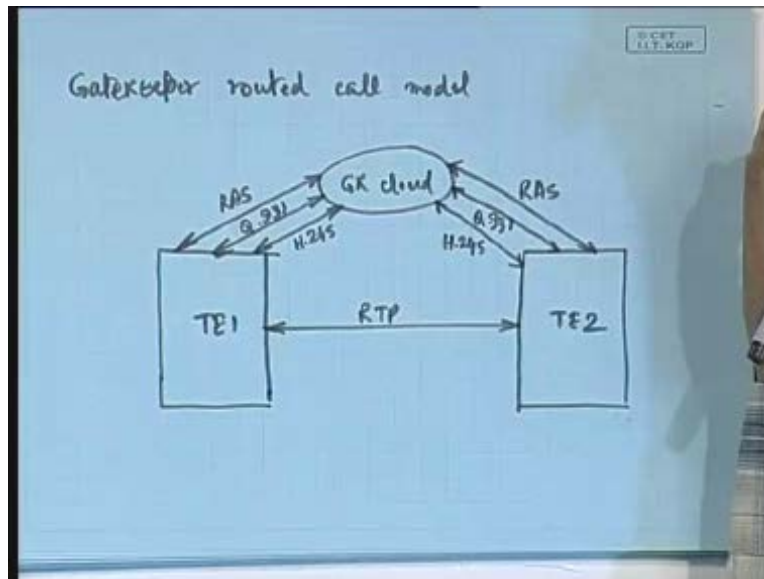 © CET
I.I.T. KGP
Gatekeeper routed call model
GK cloud
RAS
RAS
Q.931
Q.931
H.245
H.245
TE1
RTP
TE2